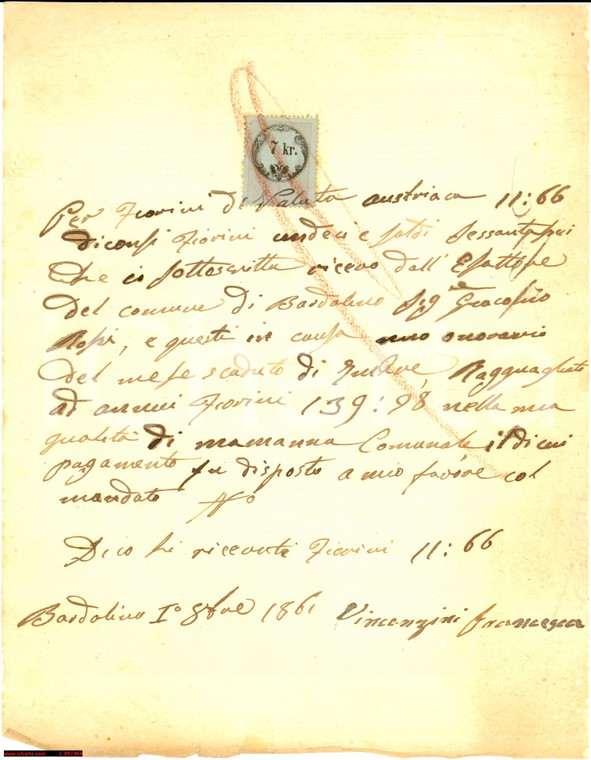 7 kr.
Per Fiorini di Valuta austriaca 11:66
diconsi Fiorini undeci e soldi Sessantasei
che io sottoscritta ricevo dall' Esattore
del comune di Bardolino Sig Giacomo
Rossi, e questi in causa mio onorario
del mese scaduto di Ragguagliato
ad annui Fiorini 139:98 nella mia
qualità di mamanna Comunale, il di cui
pagamento fu disposto a mio favore col
mandato No
Dico li ricevuti Fiorini 11:66
Bardolino Io 8bre 1861 Vincenzini francesca